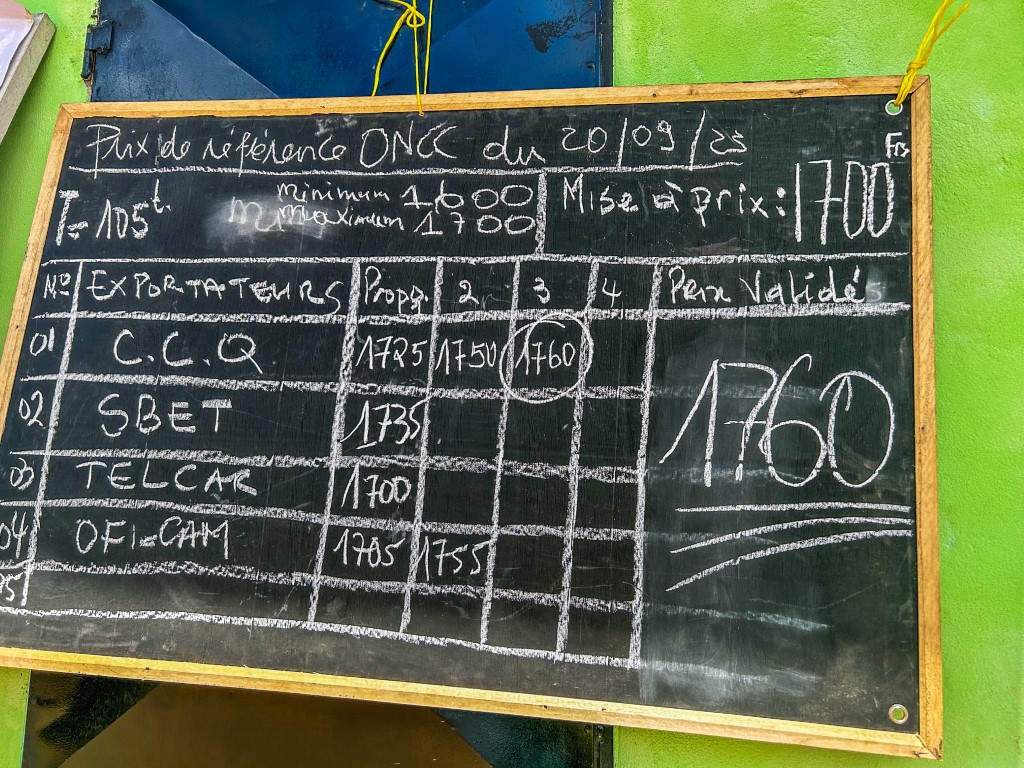 Prix de référence ONCC du 20/09/23
Frs
T=105t.
minimum 1600
maximum 1700
Mise à prix: 1700
No EXPORTATEURS Propo. 2 3 4 Prix Validé
01 C.C.Q 1725 1750 1760
1760
02 SBET 1735
03 TELCAR 1700
04 OFI-CAM 1705 1755